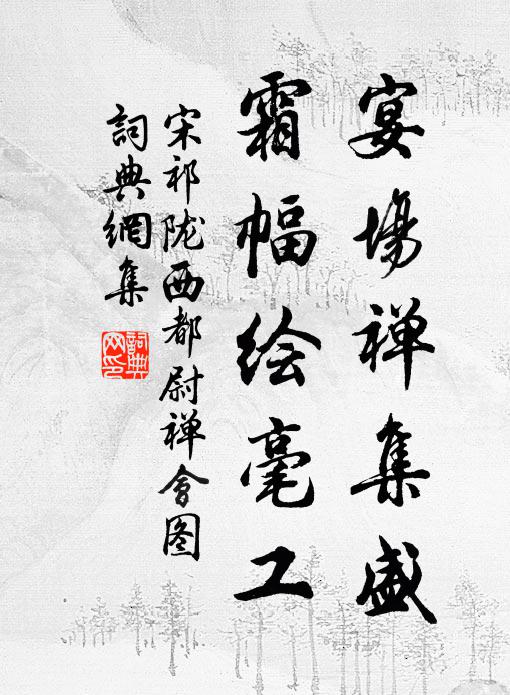 宴場禅集盛
霜幅绘毫工
宋祁陇西都尉禅會图
詞典網集
詞典網印